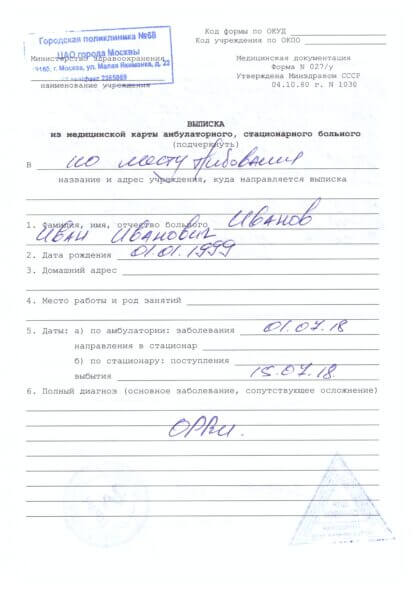 Городская поликлиника №68
ЦАО города Москвы
Министерство здравоохранения
г. Москва, ул. Малая Якиманка, д. 22
наименование учреждения
Код формы по ОКУД
Код учреждения по ОКПО
Медицинская документация
Форма N 027/у
Утверждена Минздравом СССР
04.10.80 г. N 1030
ВЫПИСКА
из медицинской карты амбулаторного, стационарного больного
(подчеркнуть)
В по месту требования
название и адрес учреждения, куда направляется выписка
1. Фамилия, имя, отчество больного Иванов
Иван Иванович
2. Дата рождения 01.01.1999
3. Домашний адрес
4. Место работы и род занятий
5. Даты: а) по амбулатории: заболевания 01.07.18
направления в стационар
б) по стационару: поступления
выбытия 15.07.18
6. Полный диагноз (основное заболевание, сопутствующее осложнение)
ОРВИ.